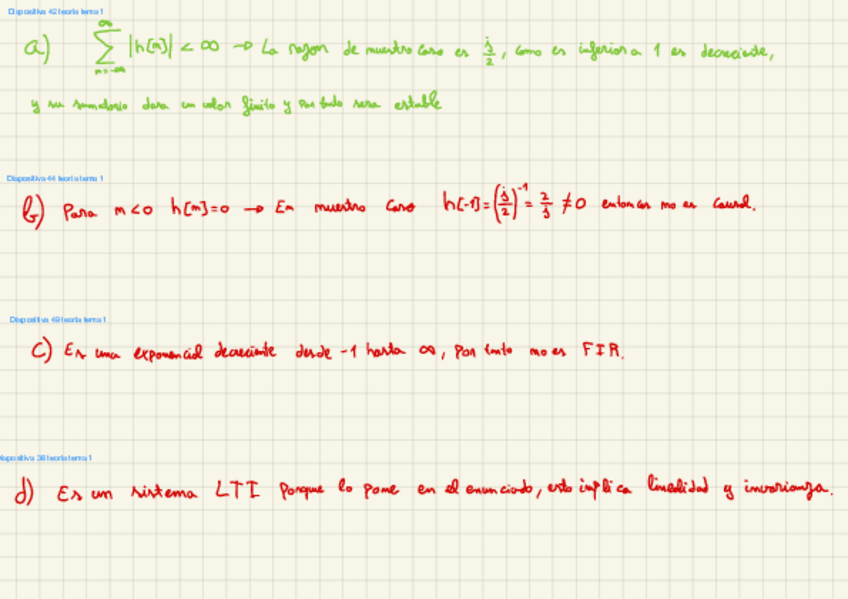 Diapositiva 42 teoria tema 1
a) ∑_{n=-∞}^{∞} |h[n]| < ∞ → La razon de nuestro caso es j/2, como es inferior a 1 es decreciente,
y su sumatorio dara un valor finito y por tanto sera estable
Diapositiva 44 teoria tema 1
b) Para n<0 h[n]=0 → En nuestro caso h[-1]=(j/2)^-1=2/j ≠0 entonces no es causal.
Diapositiva 49 teoria tema 1
c) Es una exponencial decreciente desde -1 hasta ∞, por tanto no es FIR.
iapositiva 38 teoria tema 1
d) Es un sistema LTI porque lo pone en el enunciado, esto implica linealidad y invarianza.